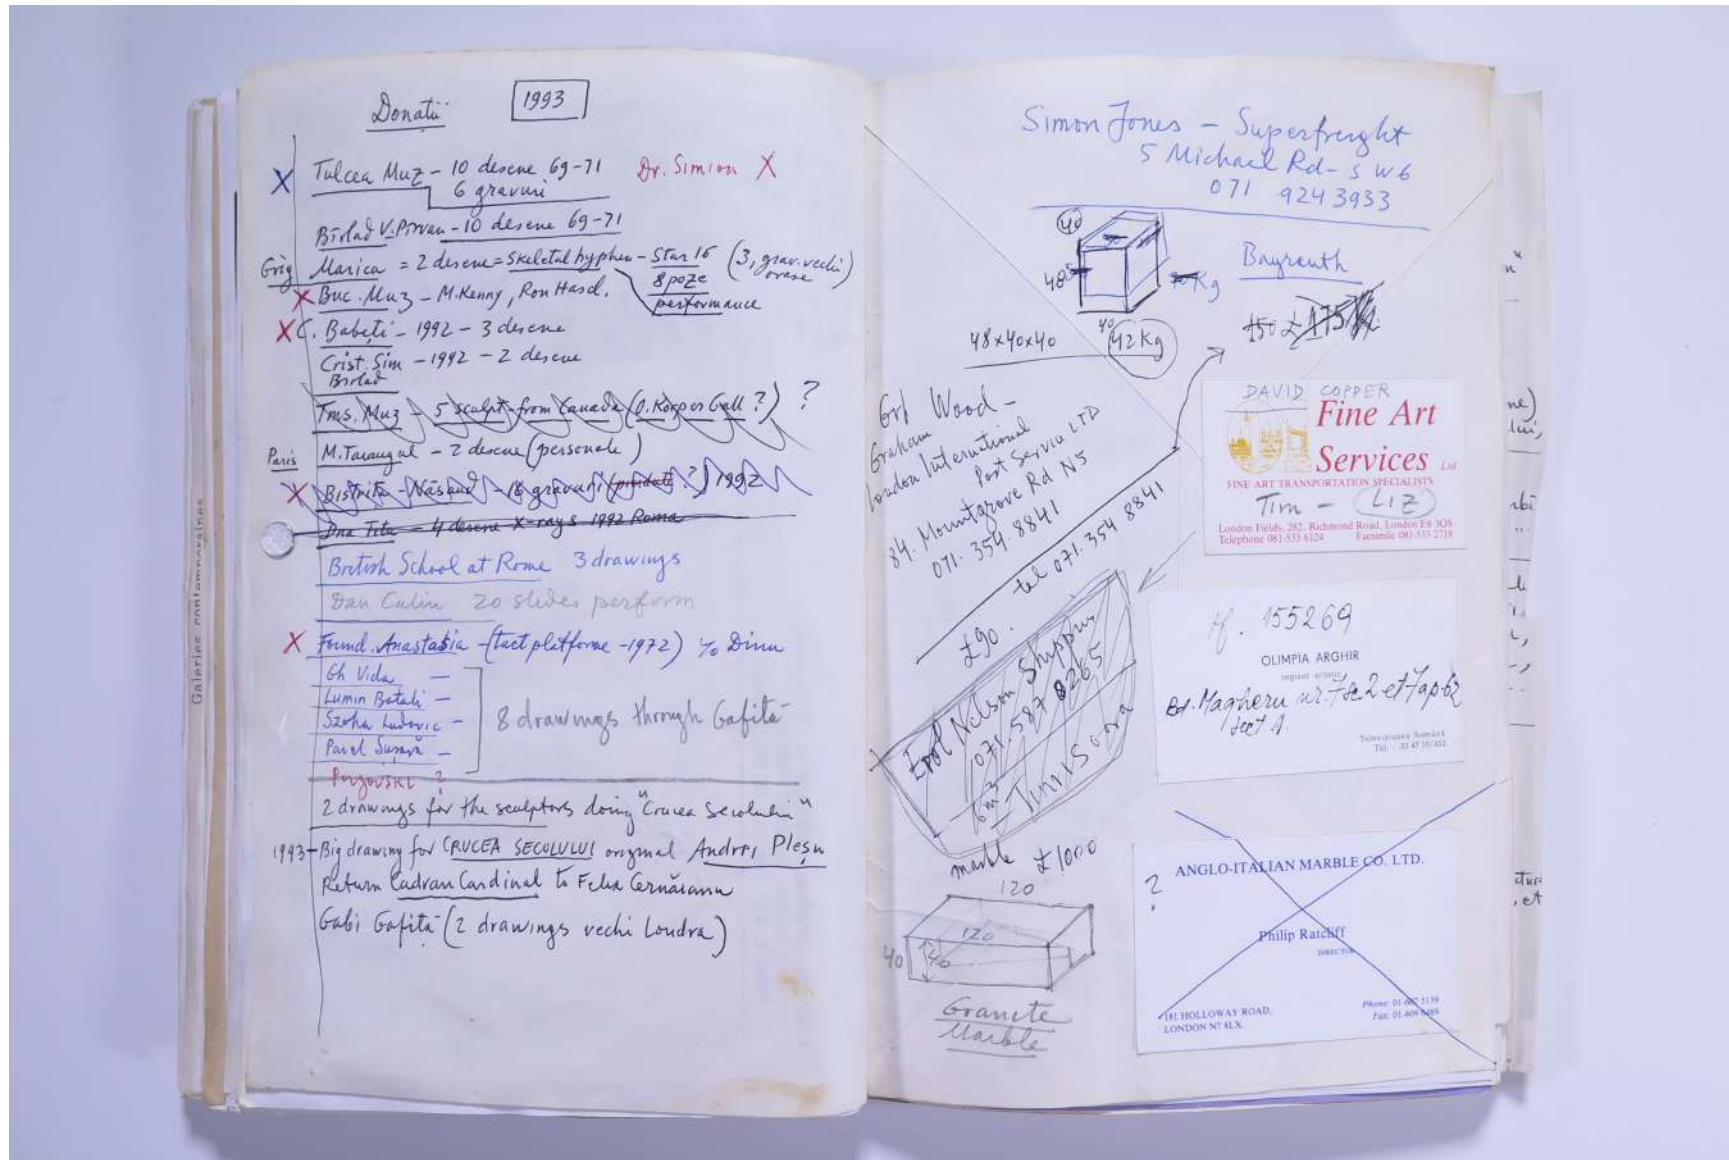 Donatii 1993
X Tulcea Muz - 10 desene 69-71 Dr. Simion X
6 gravuri
Bîrlad V. Pîrvan - 10 desene 69-71
Grig Marica = 2 desene = Skeletal hyphen - Star 16 (3, grav. vechi
8 poze orase)
performance
X Buc. Muz - M. Kenny, Ron Hasel.
X C. Babeți - 1992 - 3 desene
Crist. Sim - 1992 - 2 desene
Bîrlad
Tms. Muz - 5 sculpt from Canada (O. Korper Gall ?) ?
Paris M. Tarangul - 2 desene (personale)
X Bistrița - Năsăud - 16 gravuri ( ?) 1992
Dna Tita - 4 desene X-rays 1992 Roma
British School at Rome 3 drawings
Dan Culin 20 slides perform
X Found. Anastasia - (tact platforme - 1972) % Dinu
Gh Vida -
Lumin Batali -
Szoka Ludovic -
Pavel Șușară -
8 drawings through Gafiță
Perjovski ?
2 drawings for the sculptors doing "Crucea Secolului"
1993 - Big drawing for CRUCEA SECOLULUI original Andrei Pleșu
Return Cadran Cardinal to Felix Cernăianu
Gabi Gafiță (2 drawings vechi Londra)
Simon Jones - Superfreight
5 Michael Rd - SW6
071 924 3933
40
Kg
Bayreuth
150 £ 175
40
48x40x40 42 Kg
Wood -
Graham
London International
Post Service LTD
84. Mountgrove Rd N5
071. 354. 8841
tel 071. 354 8841
£90.
Errol Nelson Shipping
071. 587 8265
6 m3 Timisoara
marble £1000
120
120
40
40
Granite
Marble
DAVID COPPER
Fine Art
Services Ltd
FINE ART TRANSPORTATION SPECIALISTS
Tim - LIZ
London Fields, 282, Richmond Road, London E8 3QS
Telephone 081-533 6124 Facsimile 081-533 2718
tf. 155269
OLIMPIA ARGHIR
regizor artistic
Bd. Magheru nr. 7 sc 2 et 7 ap 62
sect 1.
Televiziunea Română
Tel. : 33 47 10/352
?
ANGLO-ITALIAN MARBLE CO. LTD.
Philip Ratcliff
DIRECTOR
181 HOLLOWAY ROAD,
LONDON N7 8LX.
Phone: 01-607 5139
Fax: 01-609
Galeries contemporaines